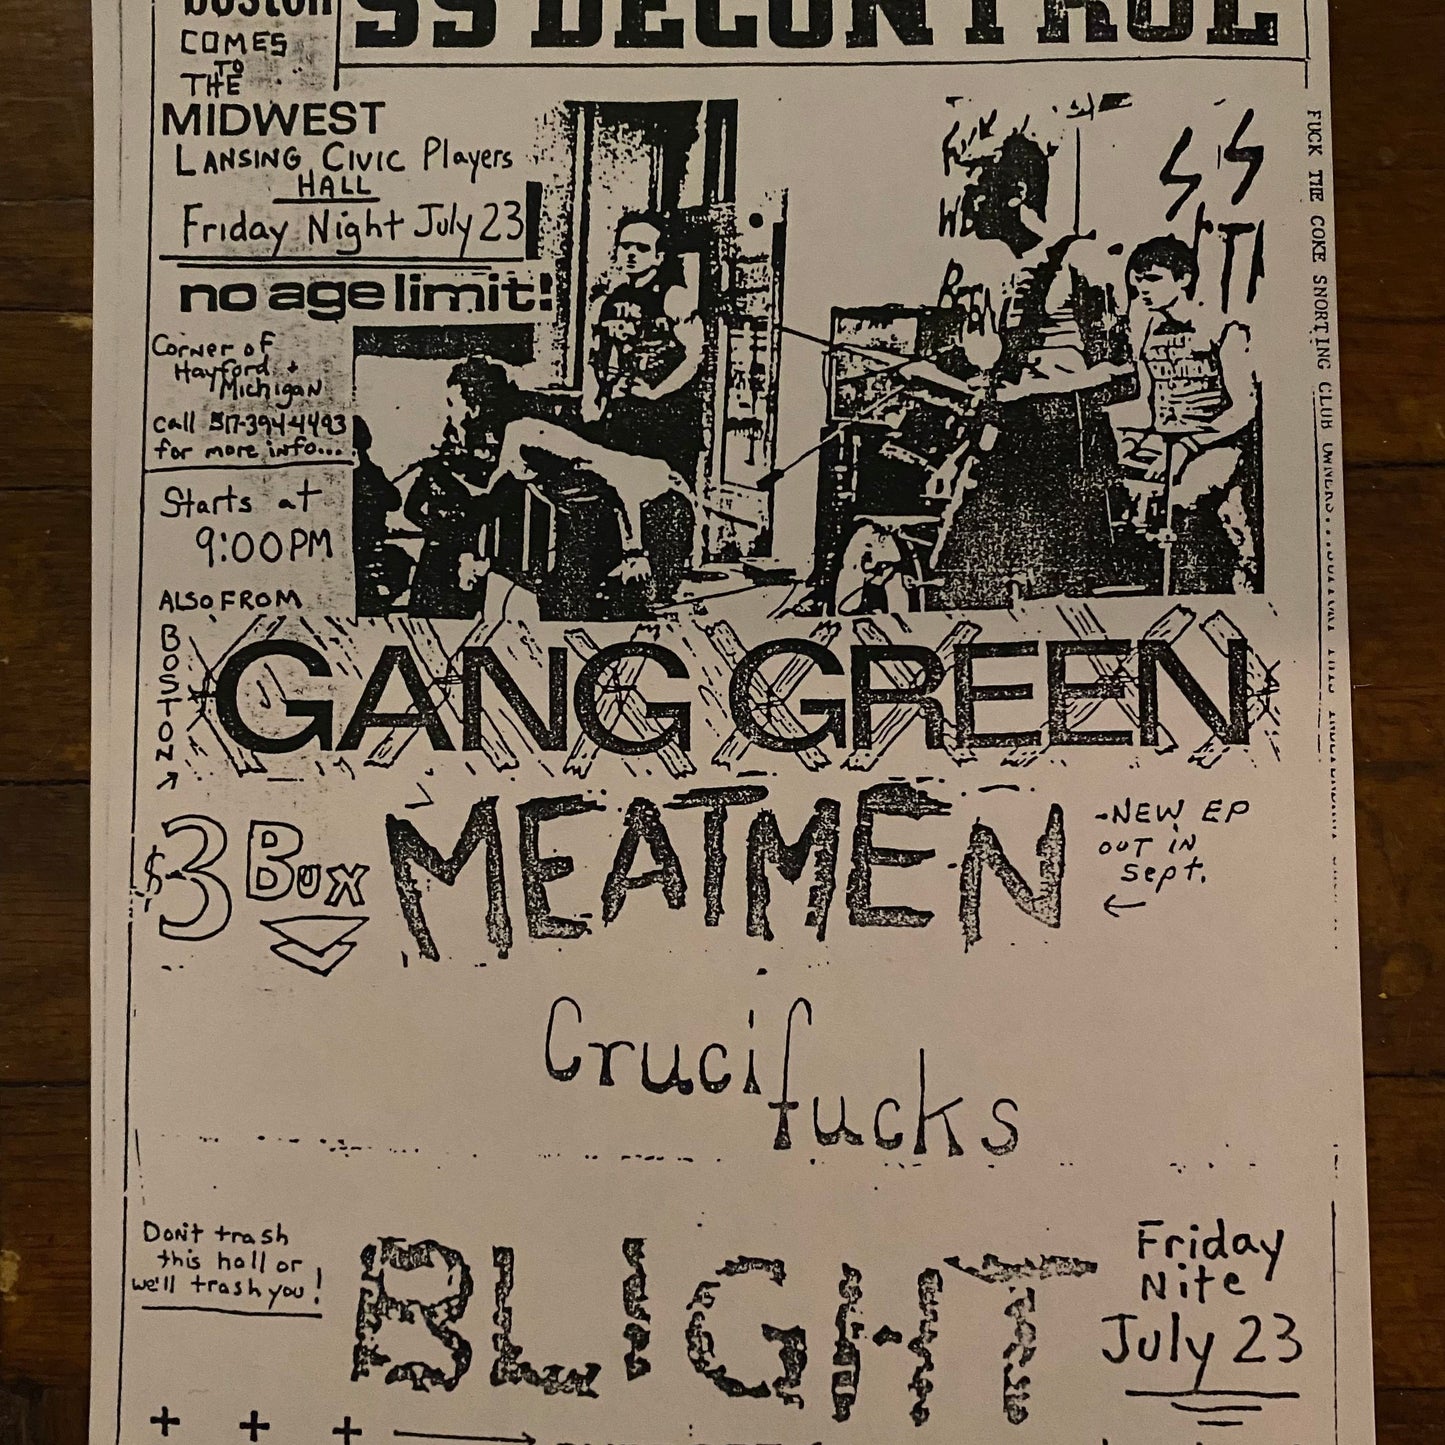 boston
COMES
TO
THE
MIDWEST
LANSING CIVIC Players
HALL
Friday Night July 23
no age limit!
Corner of
Hayford +
Michigan
call 517-394-4493
for more info...
Starts at
9:00PM
ALSO FROM
BOSTON
SS DECONTROL
SS
FUCK THE COKE SNORTING CLUB OWNERS...SUPPORT THIS
GANG GREEN
$3 Bux
MEATMEN
-NEW EP
OUT IN
Sept.
Crucifucks
Don't trash
this hall or
we'll trash you!
BLIGHT
Friday
Nite
July 23
+ + +